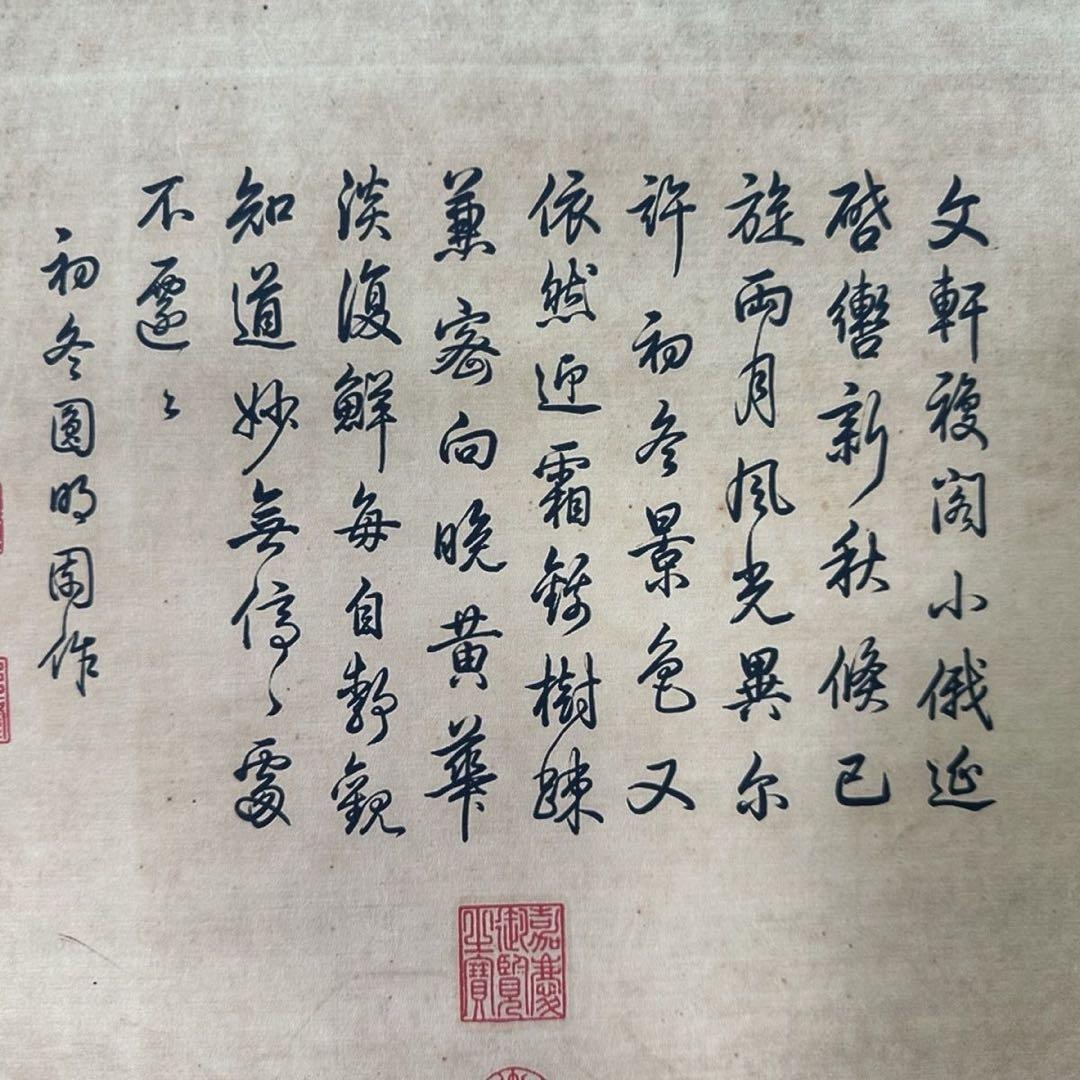 文軒複閣小俄延
啓轡新秋倏已
旋兩月風光異爾
許初冬景色又
依然迎霜錦樹踈
兼密向晚黄華
淡復鮮每自静觀
知道妙無停〻處
不遷〻
初冬圓明園作
嘉慶御覽之寶